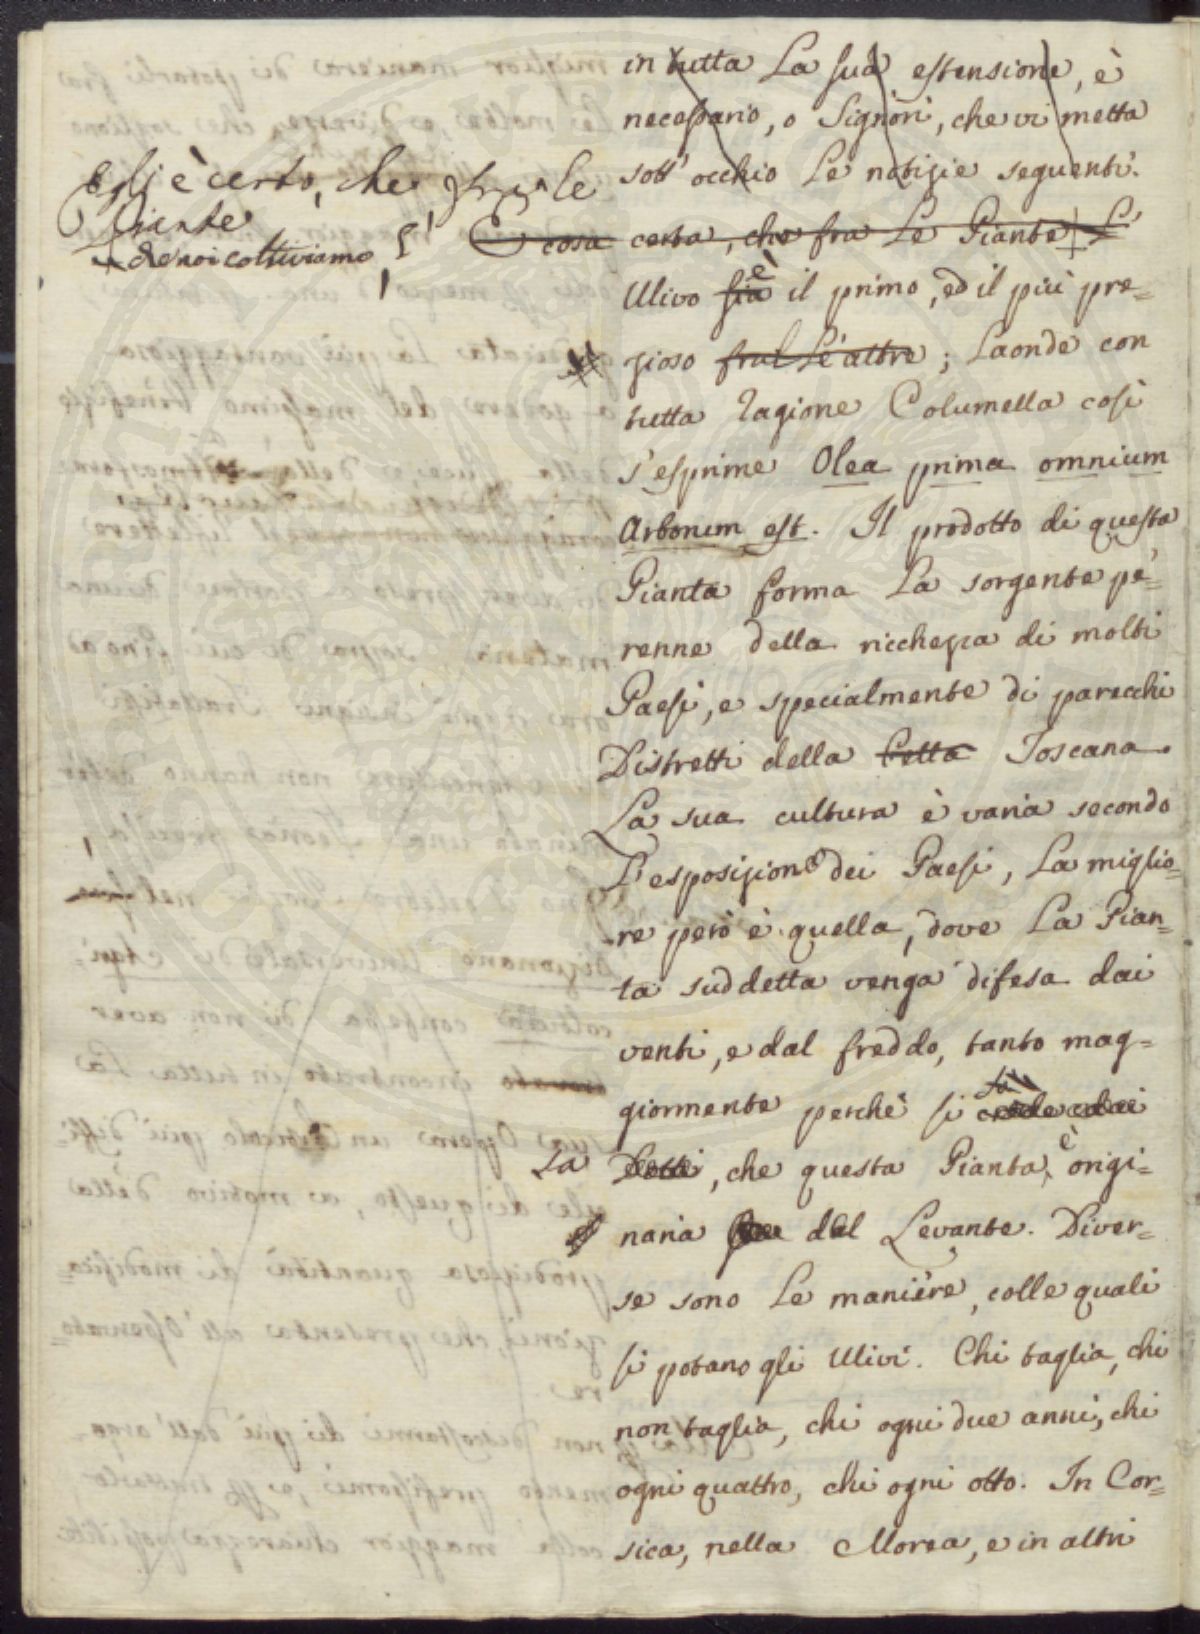 in tutta La sua estensione, è
necessario, o Signori, che vi metta
sott' occhio Le notizie seguenti.
Egli è certo, che fra le
Piante
che noi coltiviamo L'
E cosa certa, che fra Le Piante L'
Ulivo sia è il primo, ed il più pre=
zioso fral Le altre; Laonde con
tutta ragione Columella così
s'esprime Olea prima omnium
Arborum est. Il prodotto di questa
Pianta forma La sorgente pe=
renne della ricchezza di molti
Paesi, e specialmente di parecchi
Distretti della bella Toscana.
La sua cultura è varia secondo
L'esposizione dei Paesi, La miglio=
re però è quella, dove La Pian=
ta suddetta venga difesa dai
venti, e dal freddo, tanto mag=
giormente perchè si sa crede dai
Dotti, che questa Pianta è origi=
naria del Levante. Diver=
se sono Le maniere, colle quali
si potano gli Ulivi. Chi taglia, chi
non taglia, chi ogni due anni, chi
ogni quattro, chi ogni otto. In Cor=
sica, nella Morea, e in altri